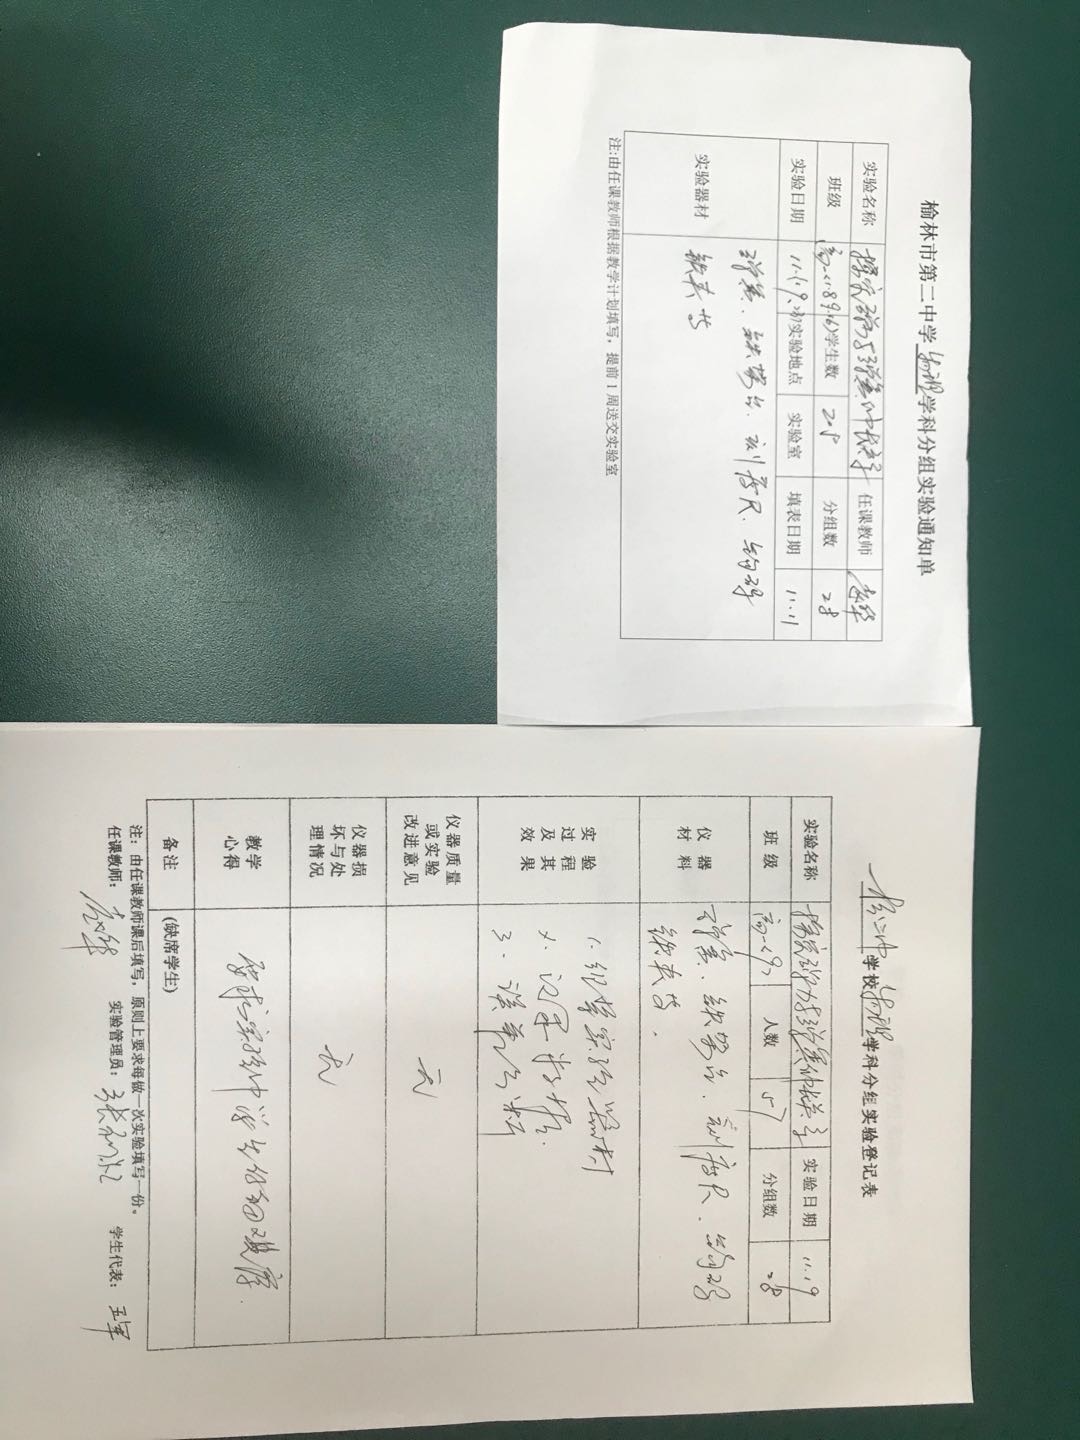 榆林市第二中学物理学科分组实验通知单
实验名称 探究弹力与弹簧伸长关系 任课教师
班级 学生数 分组数 28
实验日期 实验地点 实验室 填表日期 11.11
实验器材 弹簧、铁架台、刻度尺、钩码
铁夹等
注:由任课教师根据教学计划填写，提前1周送交实验室
榆二中学校物理学科分组实验登记表
实验名称 探究弹力与弹簧伸长关系 实验日期 11.19
班级 高一(9) 人数 57 分组数 28
仪器材料 弹簧、铁架台、刻度尺、钩码
铁夹等.
实验过程及其效果 1. 组装实验器材
2. 记录数据.
3. 误差分析
仪器质量或实验改进意见 无
仪器损坏与处理情况 无
教学心得
备注 (缺席学生)
注：由任课教师课后填写，原则上要求每做一次实验填写一份。
任课教师： 实验管理员： 学生代表：